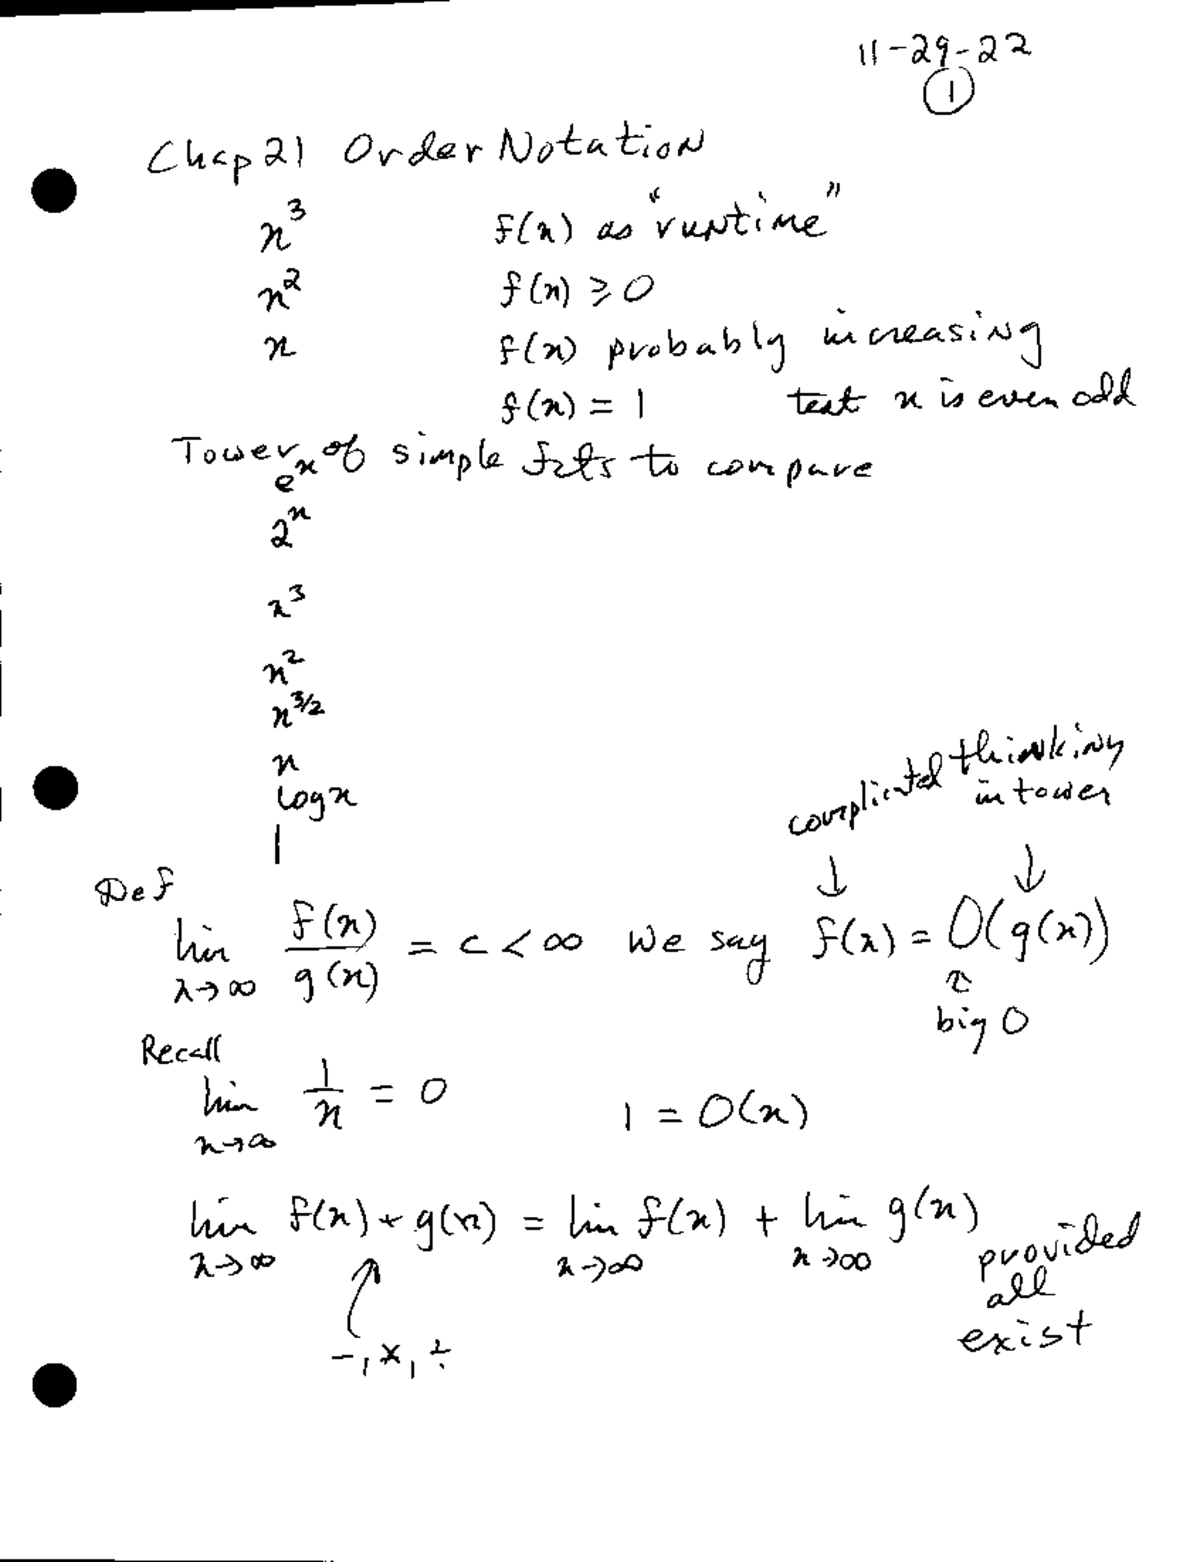 11-29-22
①
Chap 21 Order Notation
n³ f(n) as "runtime"
n² f(n) ≥ 0
n f(n) probably increasing
f(n) = 1 test n is even odd
Tower of simple fcts to compare
eⁿ
2ⁿ
n³
n²
n^3/2
n
log n
1
complicated thinking
in tower
↓ ↓
Def
lim n→∞ f(n)/g(n) = c < ∞ we say f(n) = O(g(n))
↑
big O
Recall
lim n→∞ 1/n = 0 1 = O(n)
lim n→∞ f(n) + g(n) = lim n→∞ f(n) + lim n→∞ g(n) provided
all
exist
-, ×, ÷